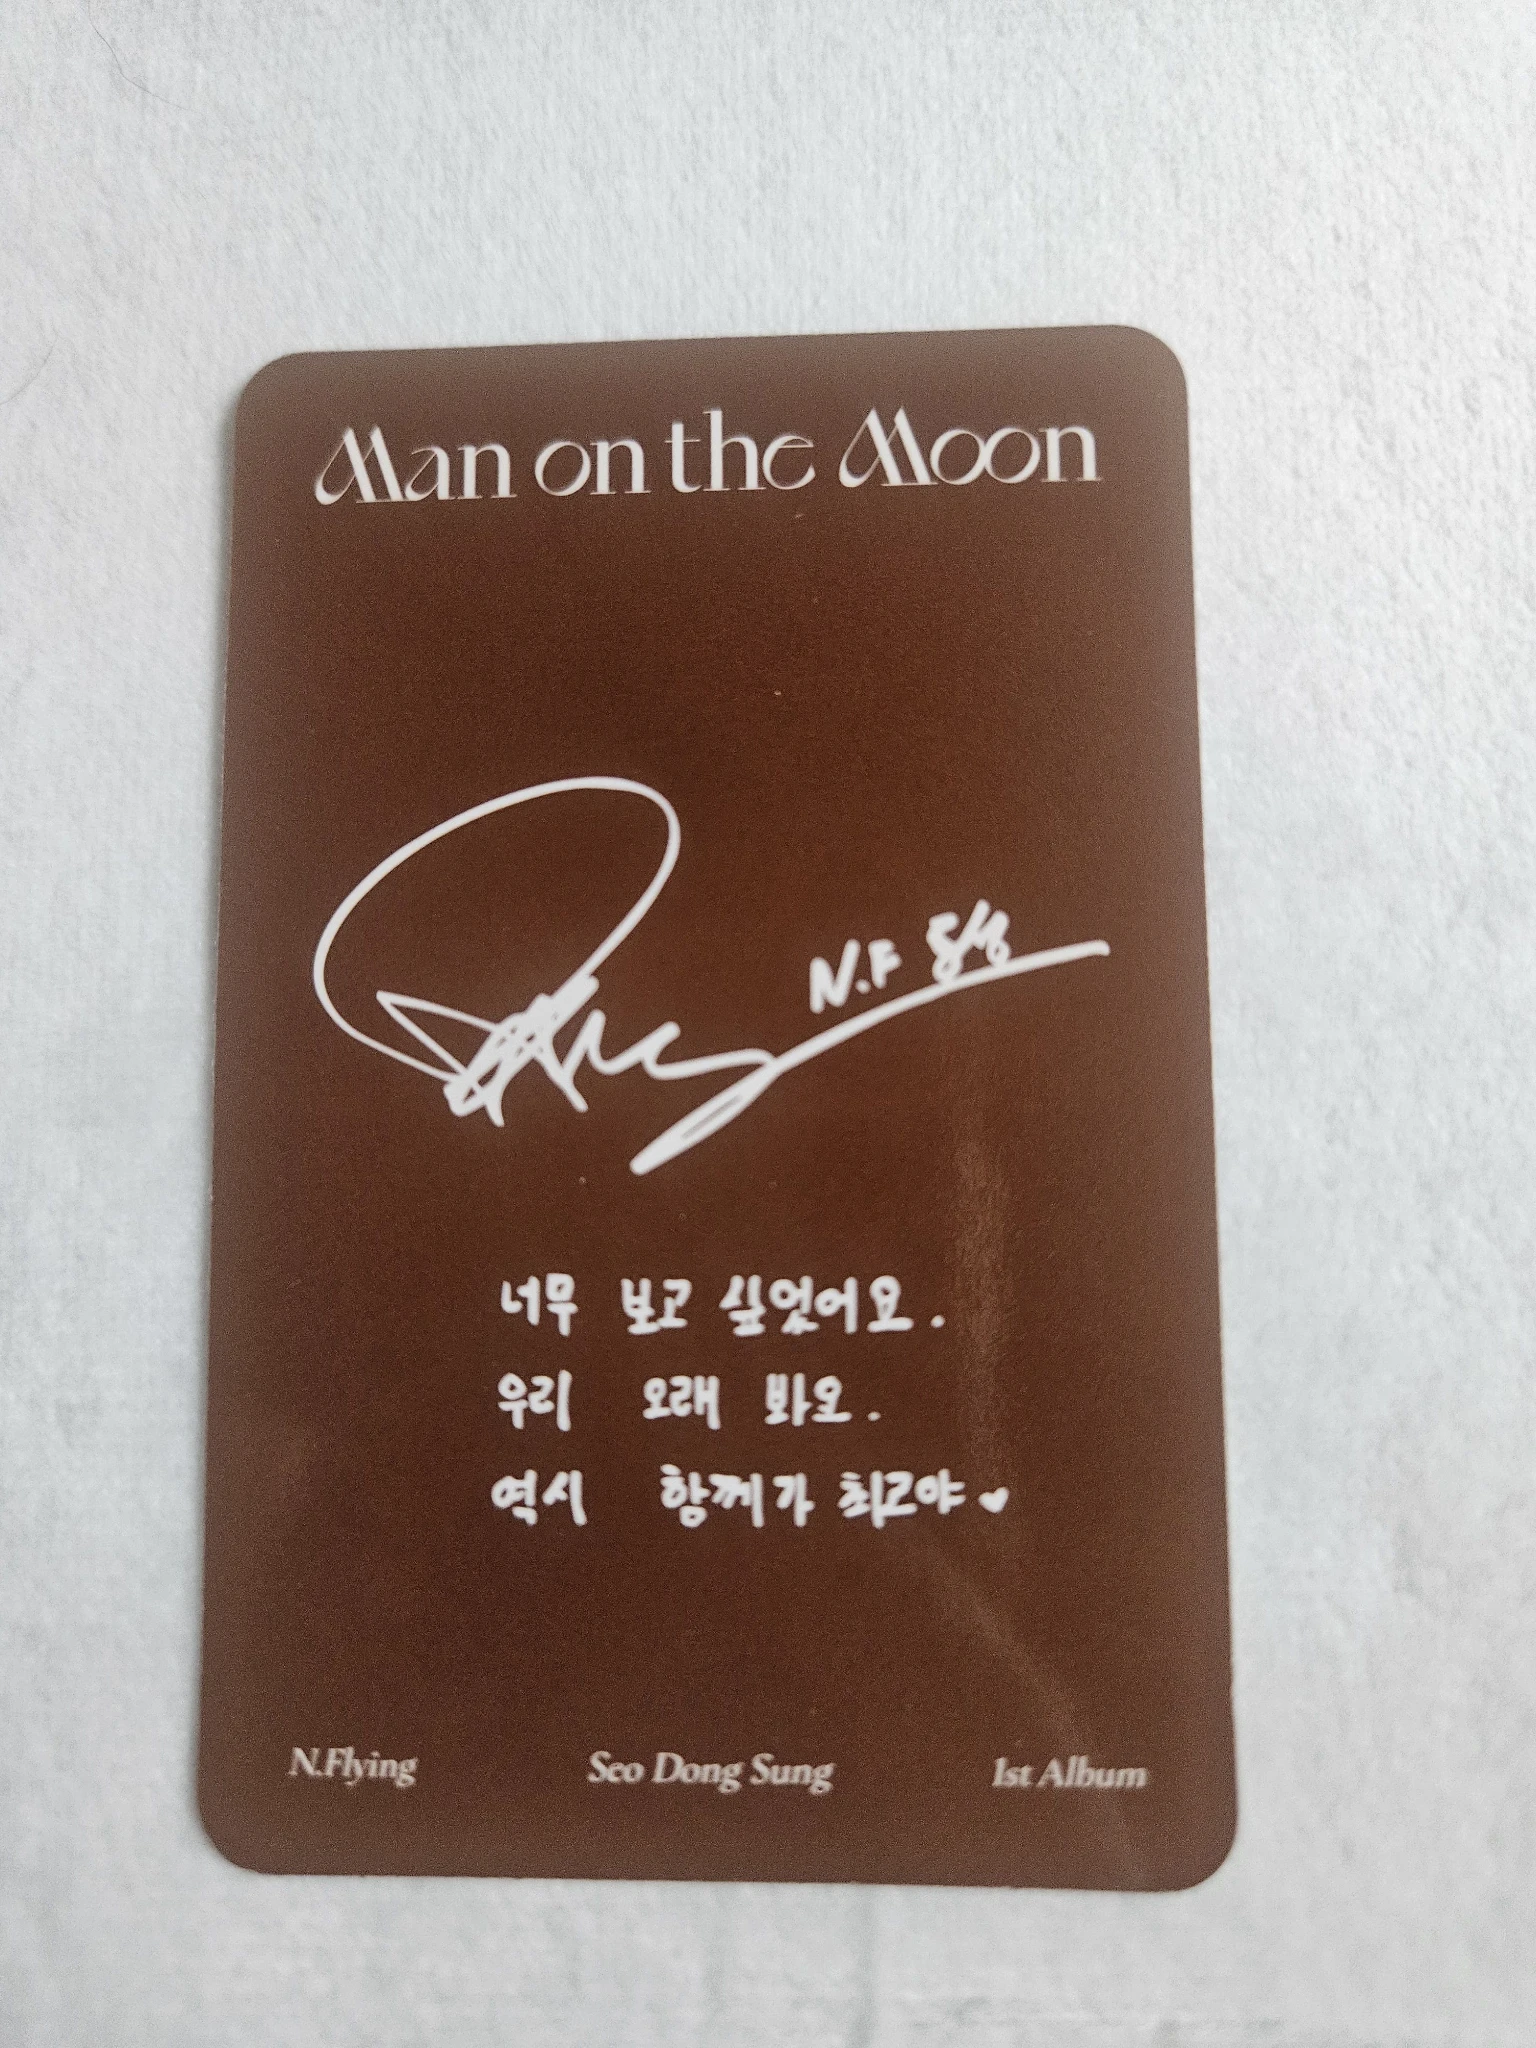 Man on the Moon
N.F 동성
너무 보고 싶었어요.
우리 오래 봐요.
역시 함께가 최고야♥
N.Flying Seo Dong Sung 1st Album